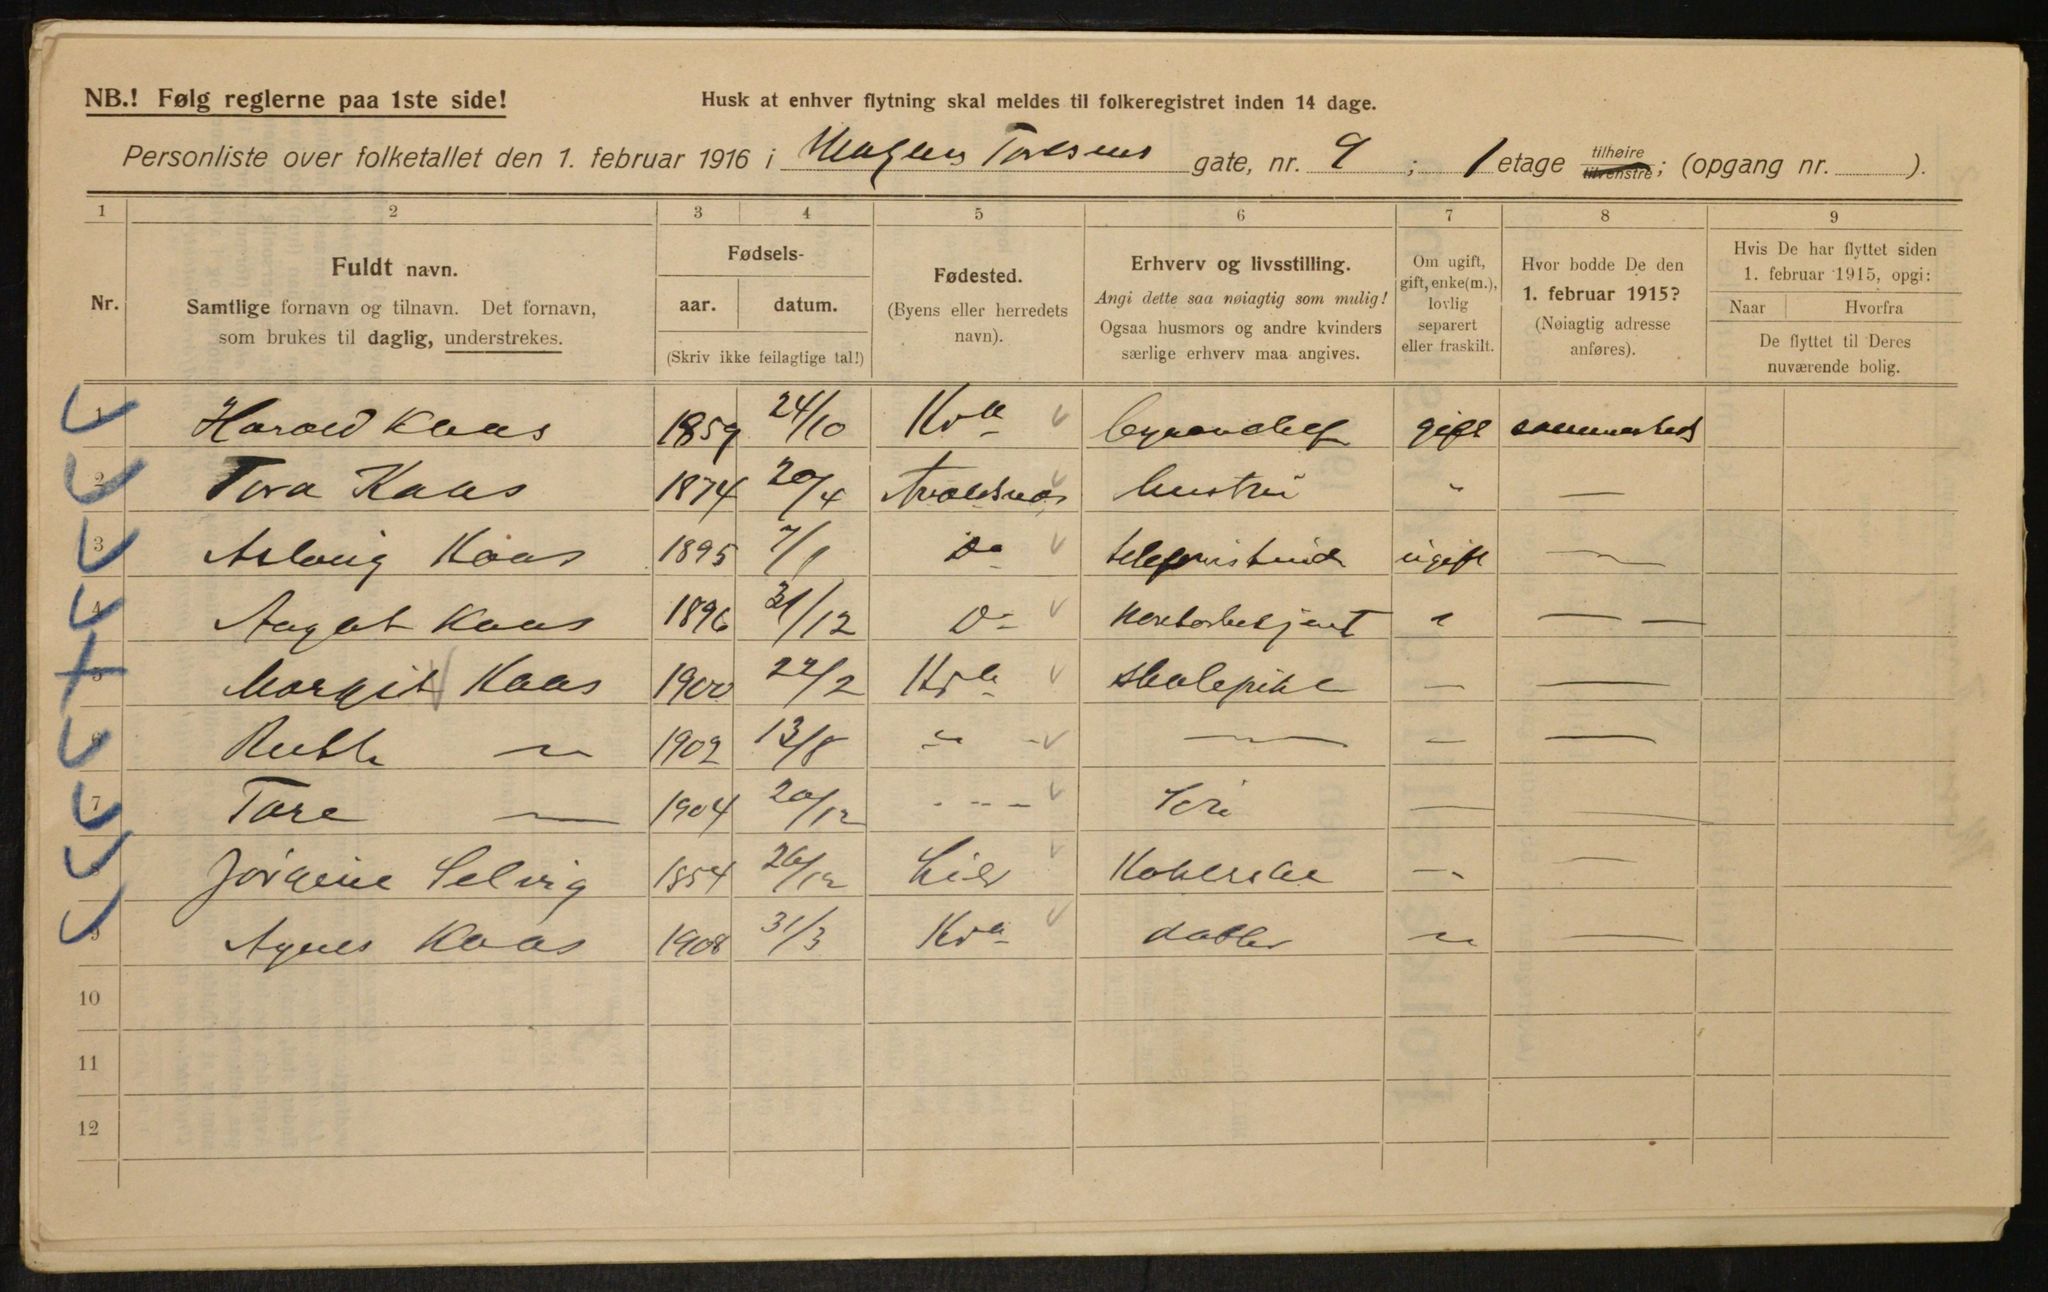 NB.! Følg reglerne paa 1ste side!
Husk at enhver flytning skal meldes til folkeregistret inden 14 dage.
Personliste over folketallet den 1. februar 1916 i Magnus Toresens gate, nr. 9 ; 1 etage tilhøire tilvenstre; (opgang nr. ).
1 2 3 4 5 6 7 8 9
Nr.
Fuldt navn.
Samtlige fornavn og tilnavn. Det fornavn,
som brukes til daglig, understrekes.
Fødsels-
aar. datum.
(Skriv ikke feilagtige tal!)
Fødested.
(Byens eller herredets
navn).
Erhverv og livsstilling.
Angi dette saa nøiagtig som mulig!
Ogsaa husmors og andre kvinders
særlige erhverv maa angives.
Om ugift,
gift, enke(m.),
lovlig
separert
eller fraskilt.
Hvor bodde De den
1. februar 1915?
(Nøiagtig adresse
anføres).
Hvis De har flyttet siden
1. februar 1915, opgi:
Naar Hvorfra
De flyttet til Deres
nuværende bolig.
1 Harald Kaas 1859 24/10 Kra gift sammesteds
2 Tora Kaas 1874 20/4 Avaldsnes hustru " —
3 Aslaug Kaas 1895 7/1 Do telefonistinde ugift —
4 August Kaas 1896 31/12 Do kontorbetjent " — —
5 Margit Kaas 1900 22/2 Kra skolepike — —
6 Ruth — 1902 13/8 " - — — —
7 Tore — 1904 20/12 - - - — —
Jørgine Selvig 1854 26/12 Lier Kokkerske — —
9 Agnes Kaas 1908 31/3 Kra datter — —
10
11
12